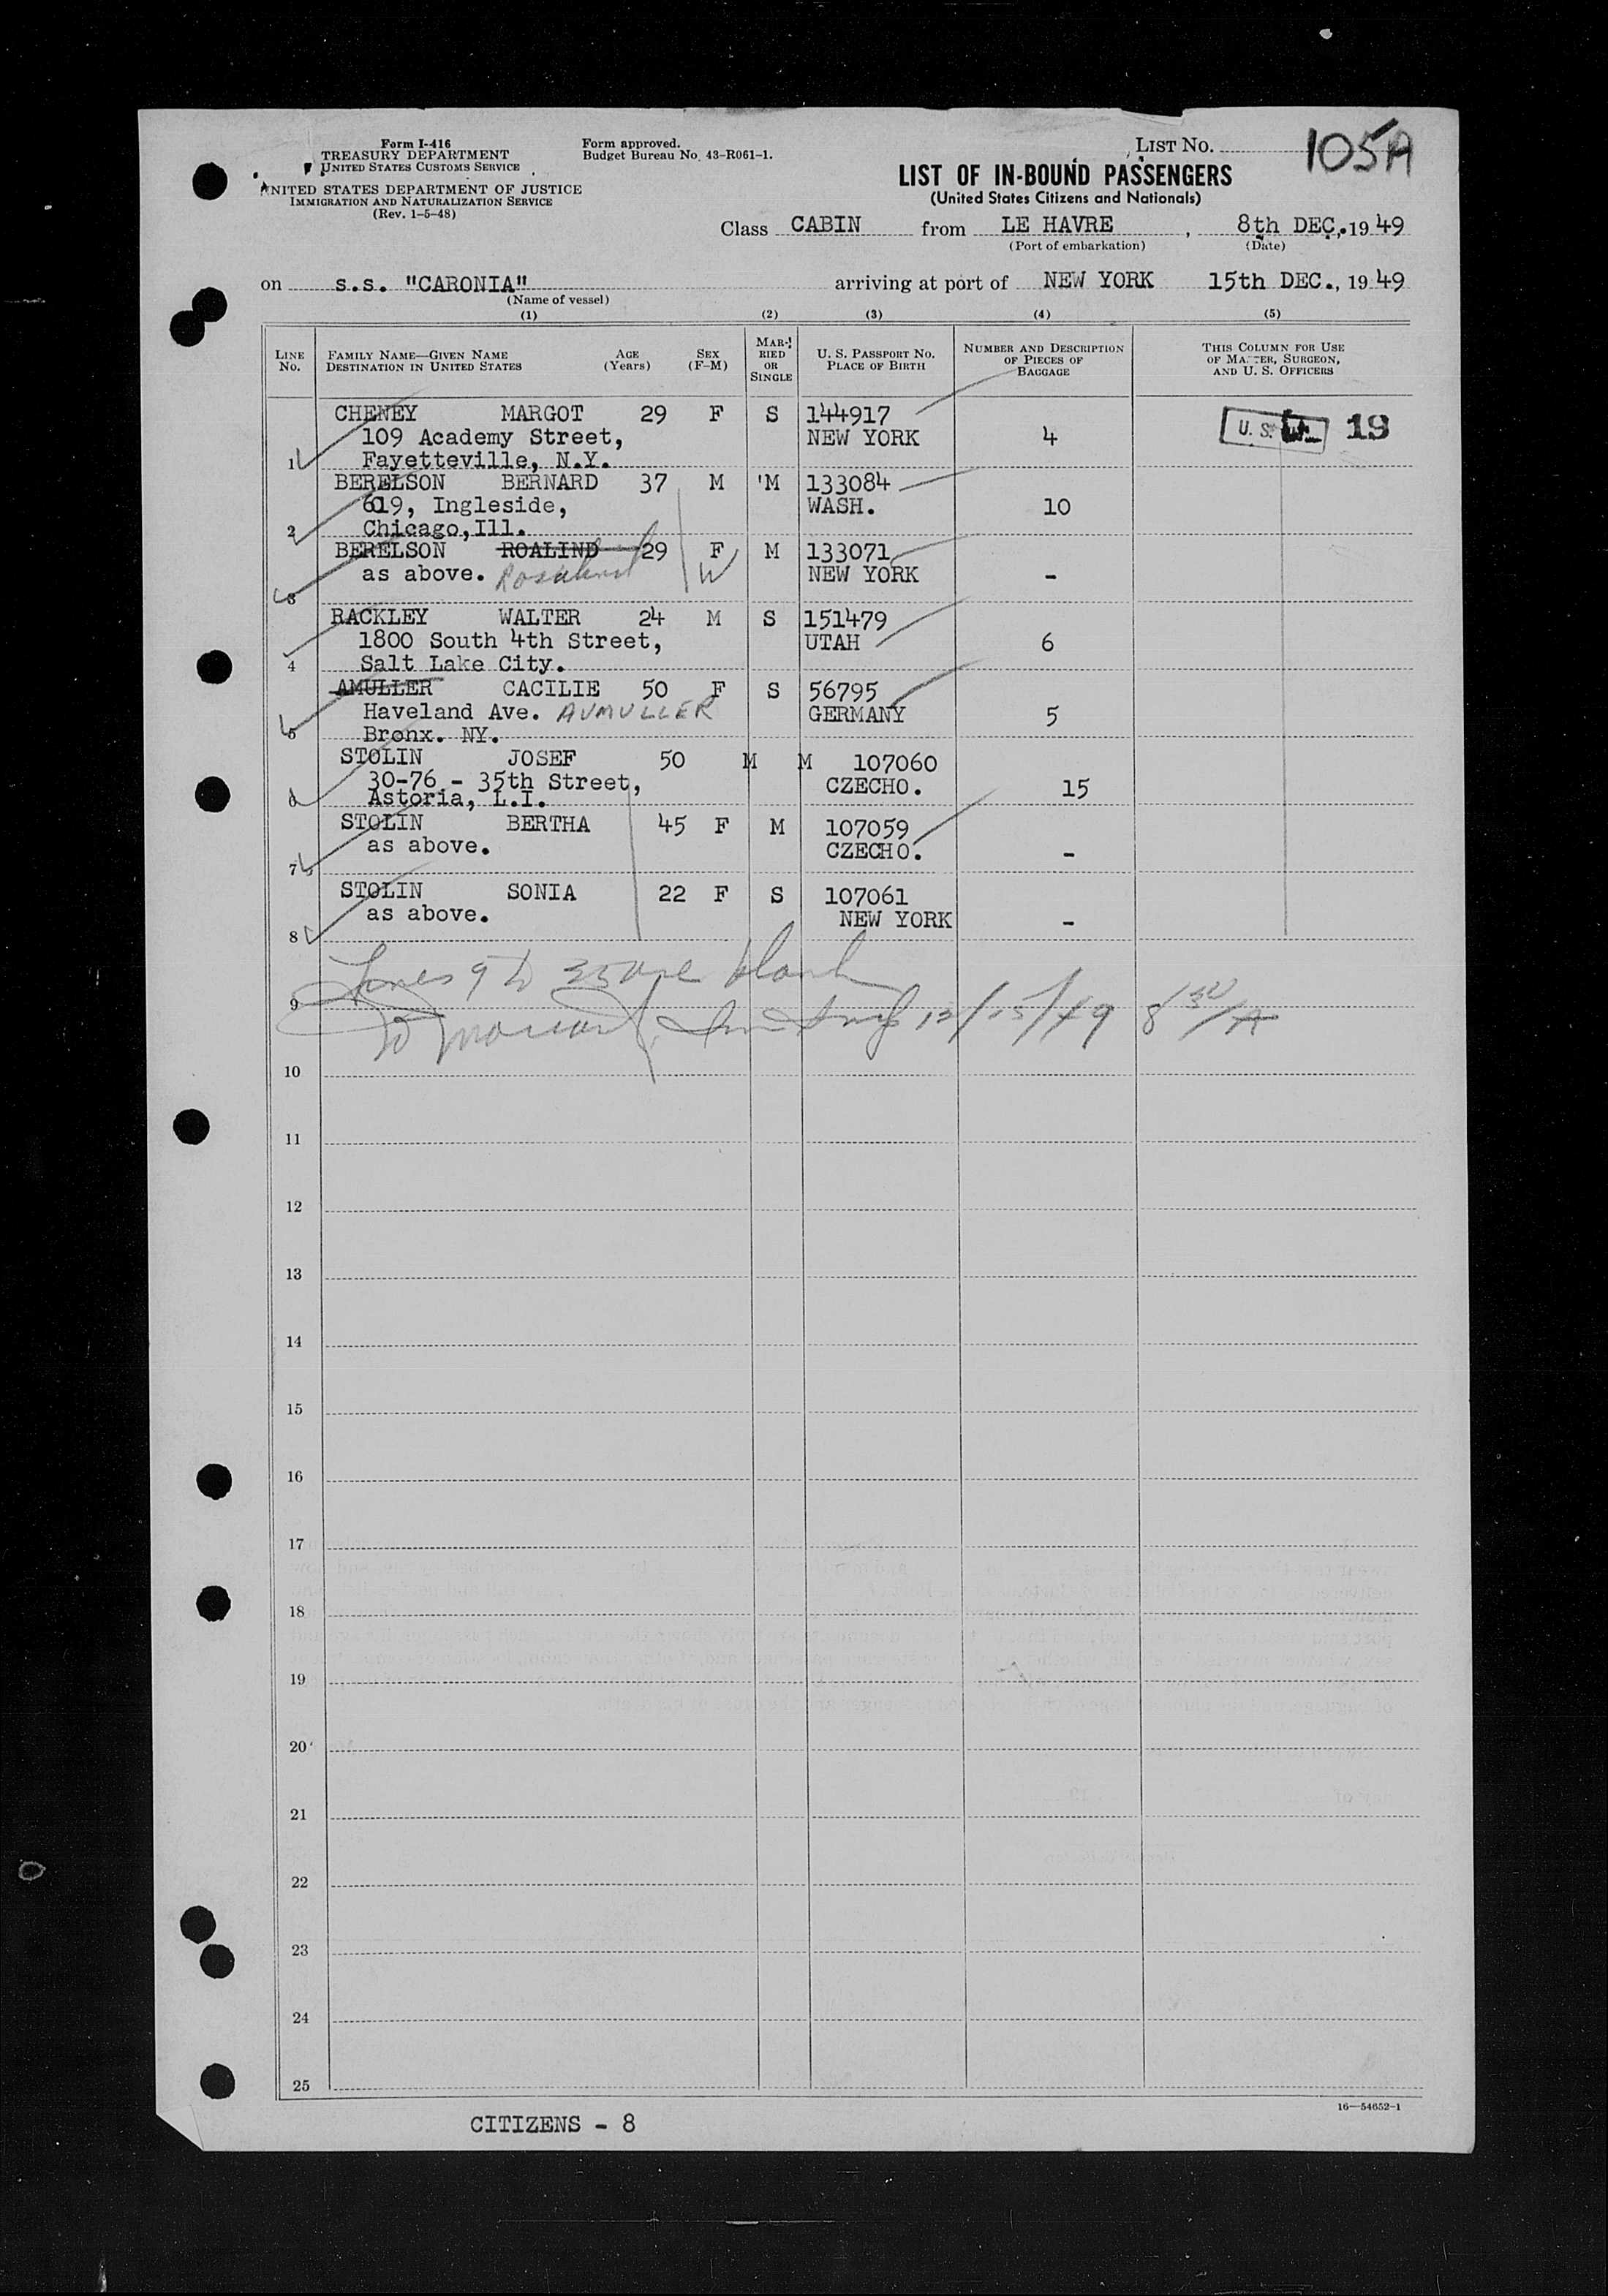 Form I-416
TREASURY DEPARTMENT
UNITED STATES CUSTOMS SERVICE
UNITED STATES DEPARTMENT OF JUSTICE
IMMIGRATION AND NATURALIZATION SERVICE
(Rev. 1-5-48)
Form approved.
Budget Bureau No. 43-R061-1.
LIST No. 105A
LIST OF IN-BOUND PASSENGERS
(United States Citizens and Nationals)
Class CABIN from LE HAVRE, 8th DEC. 1949
(Port of embarkation) (Date)
on s.s. "CARONIA" arriving at port of NEW YORK 15th DEC., 1949
(Name of vessel)
(1) (2) (3) (4) (5)
LINE No. FAMILY NAME—GIVEN NAME DESTINATION IN UNITED STATES AGE (Years) SEX (F-M) MARRIED OR SINGLE U. S. PASSPORT No. PLACE OF BIRTH NUMBER AND DESCRIPTION OF PIECES OF BAGGAGE THIS COLUMN FOR USE OF MASTER, SURGEON, AND U. S. OFFICERS
CHENEY MARGOT 29 F S 144917 U. S. 19
109 Academy Street, NEW YORK 4
1 Fayetteville, N.Y.
BERELSON BERNARD 37 M 'M 133084
619, Ingleside, WASH. 10
2 Chicago,Ill.
BERELSON ROALIND 29 F M 133071
as above. Rosalind W NEW YORK -
3
RACKLEY WALTER 24 M S 151479
1800 South 4th Street, UTAH 6
4 Salt Lake City.
AMULLER CACILIE 50 F S 56795
Haveland Ave. AUMULLER GERMANY 5
5 Bronx. NY.
STOLIN JOSEF 50 M M 107060
30-76 - 35th Street, CZECHO. 15
6 Astoria, L.I.
STOLIN BERTHA 45 F M 107059
as above. CZECHO. -
7
STOLIN SONIA 22 F S 107061
as above. NEW YORK -
8
Lines 9 to 25 are blank
9
12/15/49 8 30/A
10
11
12
13
14
15
16
17
18
19
20
21
22
23
24
25
16—54652-1
CITIZENS - 8